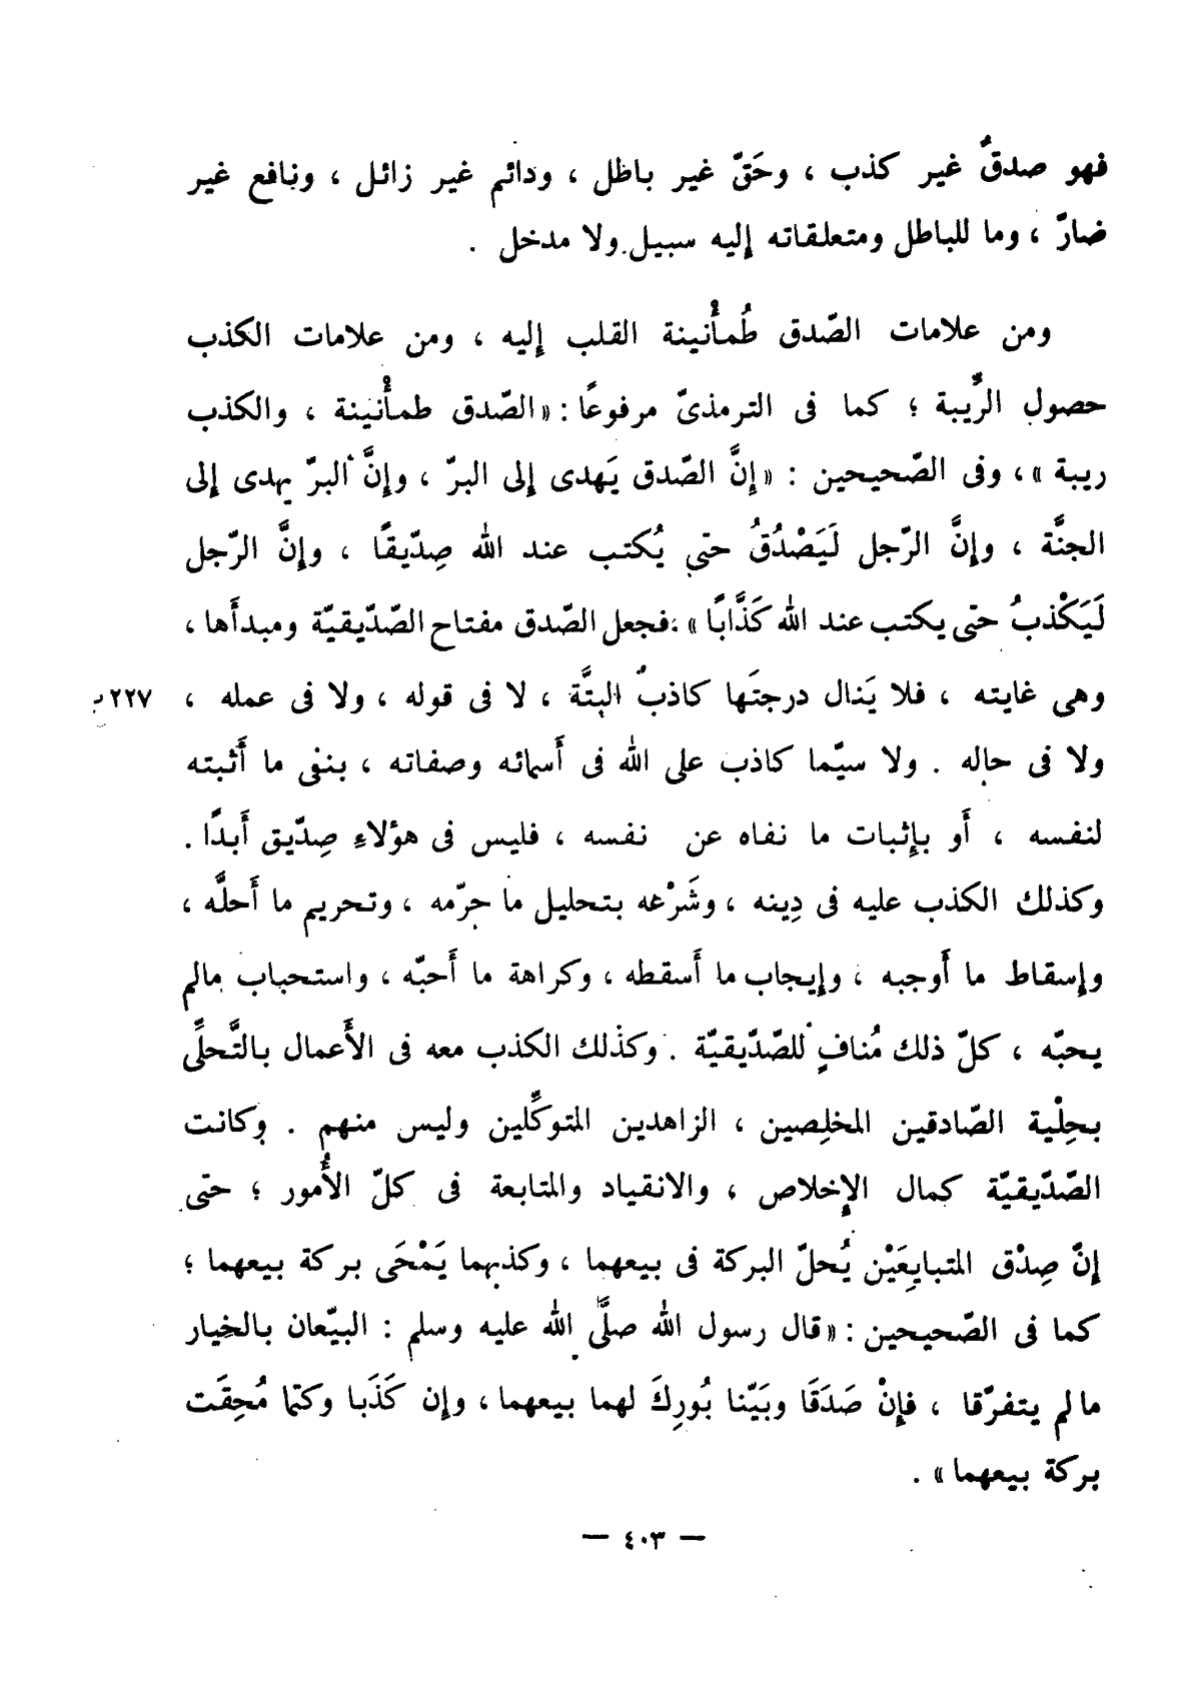 فهو صدقٌ غير كذب ، وحَقّ غير باطل ، ودائم غير زائل ، ونافع غير
ضارّ ، وما للباطل ومتعلقاته إليه سبيل ولا مدخل .
ومن علامات الصّدق طُمأْنينة القلب إليه ، ومن علامات الكذب
حصول الرِّيبة ؛ كما فى الترمذىّ مرفوعًا : «الصّدق طمأْنينة ، والكذب
ريبة » ، وفى الصّحيحين : « إنَّ الصّدق يَهدى إلى البرّ ، وإنَّ البرّ يهدى إلى
الجنَّة ، وإنَّ الرّجل لَيَصْدُقُ حتى يُكتب عند الله صِدّيقًا ، وإنَّ الرّجل
لَيَكْذبُ حتى يكتب عند الله كَذَّابًا » . فجعل الصّدق مفتاح الصّدّيقيّة ومبدأَها ،
وهى غايته ، فلا يَنال درجتَها كاذبٌ البتَّة ، لا فى قوله ، ولا فى عمله ، ٢٢٧
ولا فى حاله . ولا سيّما كاذب على الله فى أَسمائه وصفاته ، بننى ما أَثبته
لنفسه ، أَو بإثبات ما نفاه عن نفسه ، فليس فى هؤلاءِ صِدّيق أَبدًا .
وكذلك الكذب عليه فى دِينه ، وشَرْعه بتحليل ما حرّمه ، وتحريم ما أَحلَّه ،
وإسقاط ما أَوجبه ، وإيجاب ما أَسقطه ، وكراهة ما أَحبّه ، واستحباب مالم
يحبّه ، كلّ ذلك مُنافٍ للصّدّيقيّة . وكذلك الكذب معه فى الأَعمال بالتَّحلِّى
بحِلْية الصّادقين المخلِصين ، الزاهدين المتوكِّلين وليس منهم . وكانت
الصّدّيقيّة كمال الإخلاص ، والانقياد والمتابعة فى كلّ الأُمور ؛ حتى
إنّ صِدْق المتبايِعَيْن يُحلّ البركة فى بيعهما ، وكذبهما يَمْحَى بركة بيعهما ؛
كما فى الصّحيحين : «قال رسول الله صلَّى الله عليه وسلم : البيّعان بالخِيار
مالم يتفرّقا ، فإنْ صَدَقَا وبَيّنا بُورِكَ لهما بيعهما ، وإن كَذَبا وكتما مُحِقَت
بركة بيعهما » .
— ٤٠٣ —